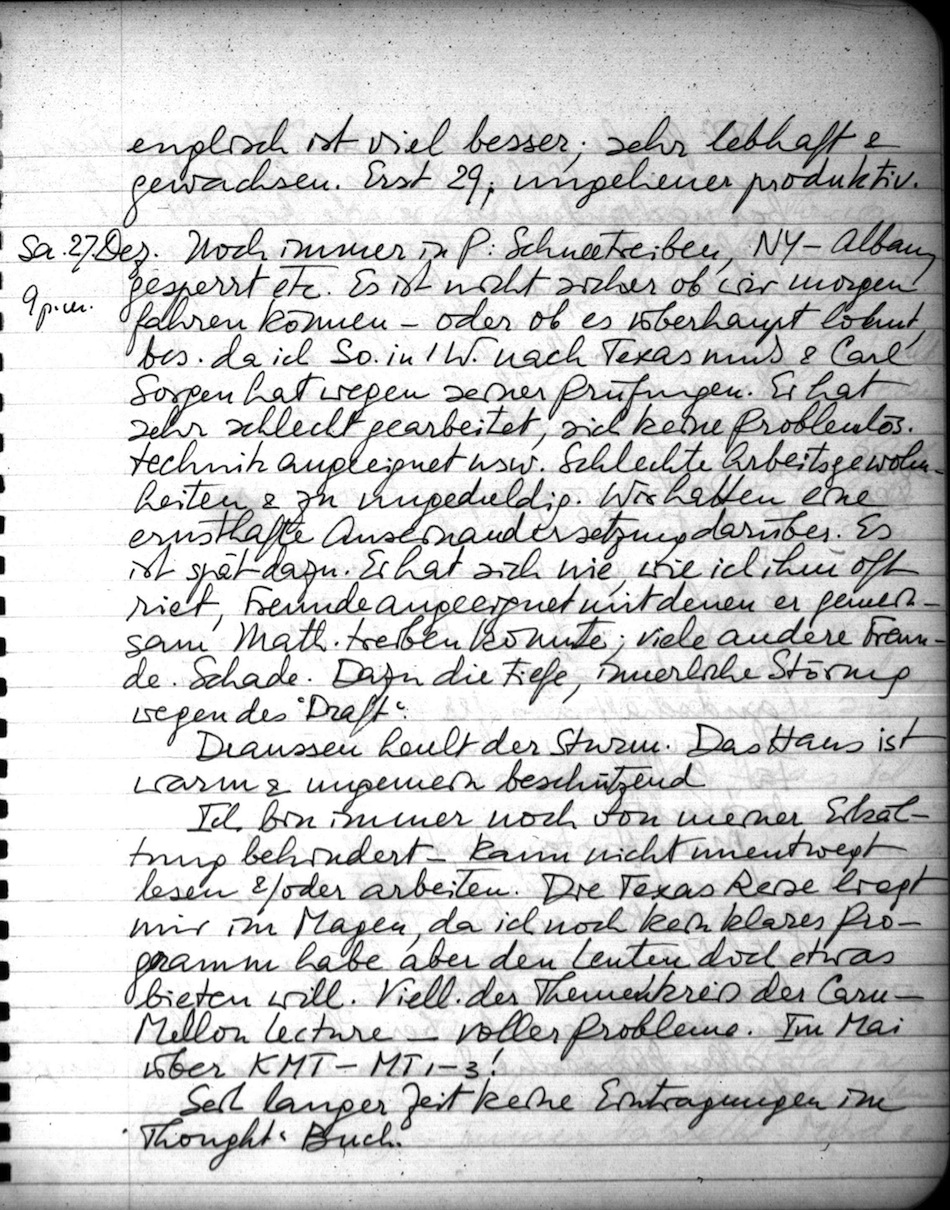 englisch ist viel besser; sehr lebhaft &
gewachsen. Erst 29; ungeheuer produktiv.
Sa. 27. Dez. Noch immer in P: Schneetreiben, NY – Albany
9 p.m. gesperrt etc. Es ist nicht sicher ob wir morgen
fahren können – oder ob es überhaupt lohnt,
bes. da ich So. in 1 W. nach Texas muß & Carl
Sorgen hat wegen seiner Prüfungen. Er hat
sehr schlecht gearbeitet, sich keine Problemlös.
technik angeeignet usw. Schlechte Arbeitsgewohn-
heiten & zu ungeduldig. Wir hatten eine
ernsthafte Auseinandersetzung darüber. Es
ist spät dazu. Er hat sich nie, wie ich ihm oft
riet, Freunde angeeignet mit denen er gemein-
sam Math. treiben könnte; viele andere Freun-
de. Schade. Dazu die tiefe, innerliche Störung
wegen des "Draft".
Draussen heult der Sturm. Das Haus ist
warm & ungemein beschützend
Ich bin immer noch von meiner Erkäl-
tung behindert – kann nicht unentwegt
lesen &/oder arbeiten. Die Texas Reise liegt
mir im Magen, da ich noch kein klares Pro-
gramm habe aber den Leuten doch etwas
bieten will. Viell. der Themenkreis der Carn–
Mellon Lecture – voller Probleme. Im Mai
über KMT – MT 1–3!
Seit langer Zeit keine Eintragungen im
"Thought" Buch.